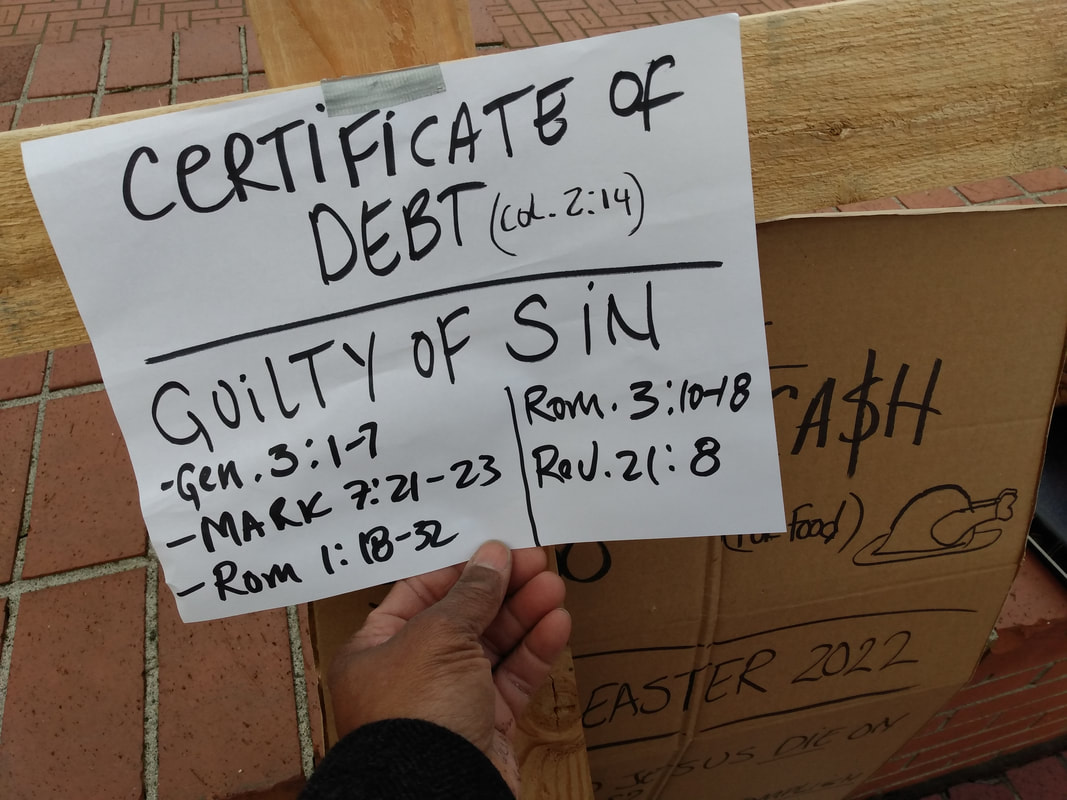 CERTIFICATE OF
DEBT (Col. 2:14)
GUILTY OF SIN
-Gen. 3:1-7
- MARK 7:21-23
- Rom 1:18-32
Rom. 3:10-18
Rev. 21:8
CA$H
Food)
EASTER 2022
JESUS DIE ON